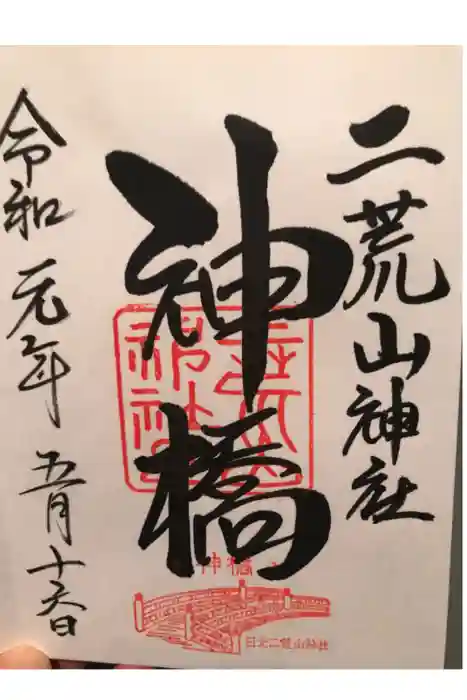 二荒山神社
神橋
令和元年五月十六日
神橋
日光二荒山神社